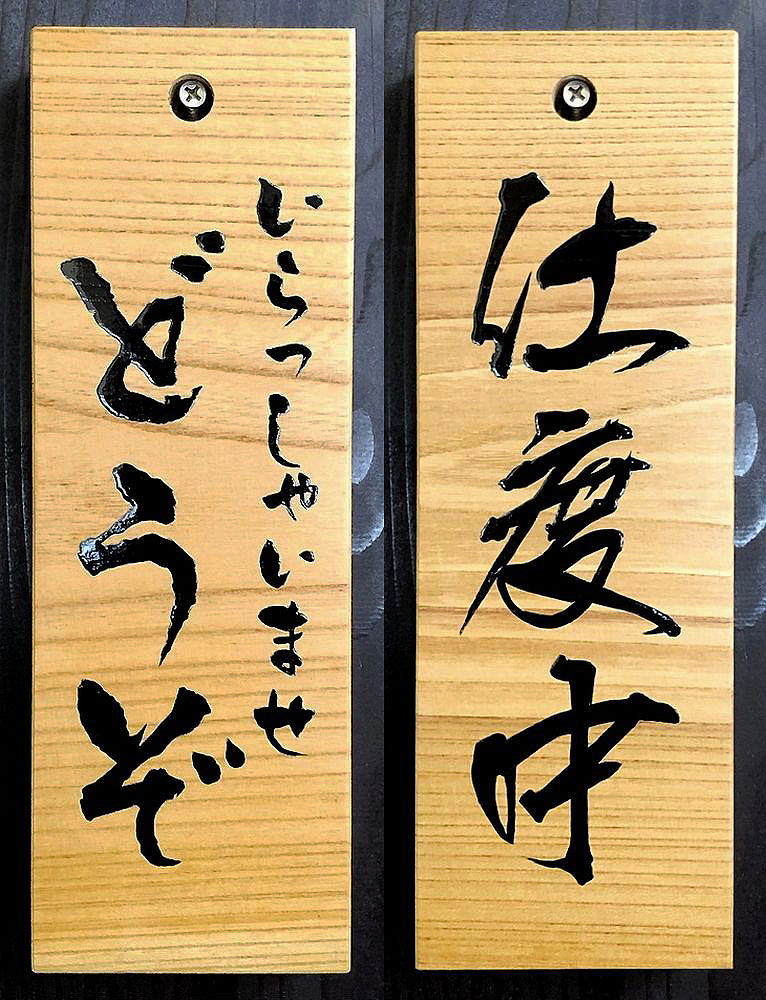 いらっしゃいませ
どうぞ
仕度中